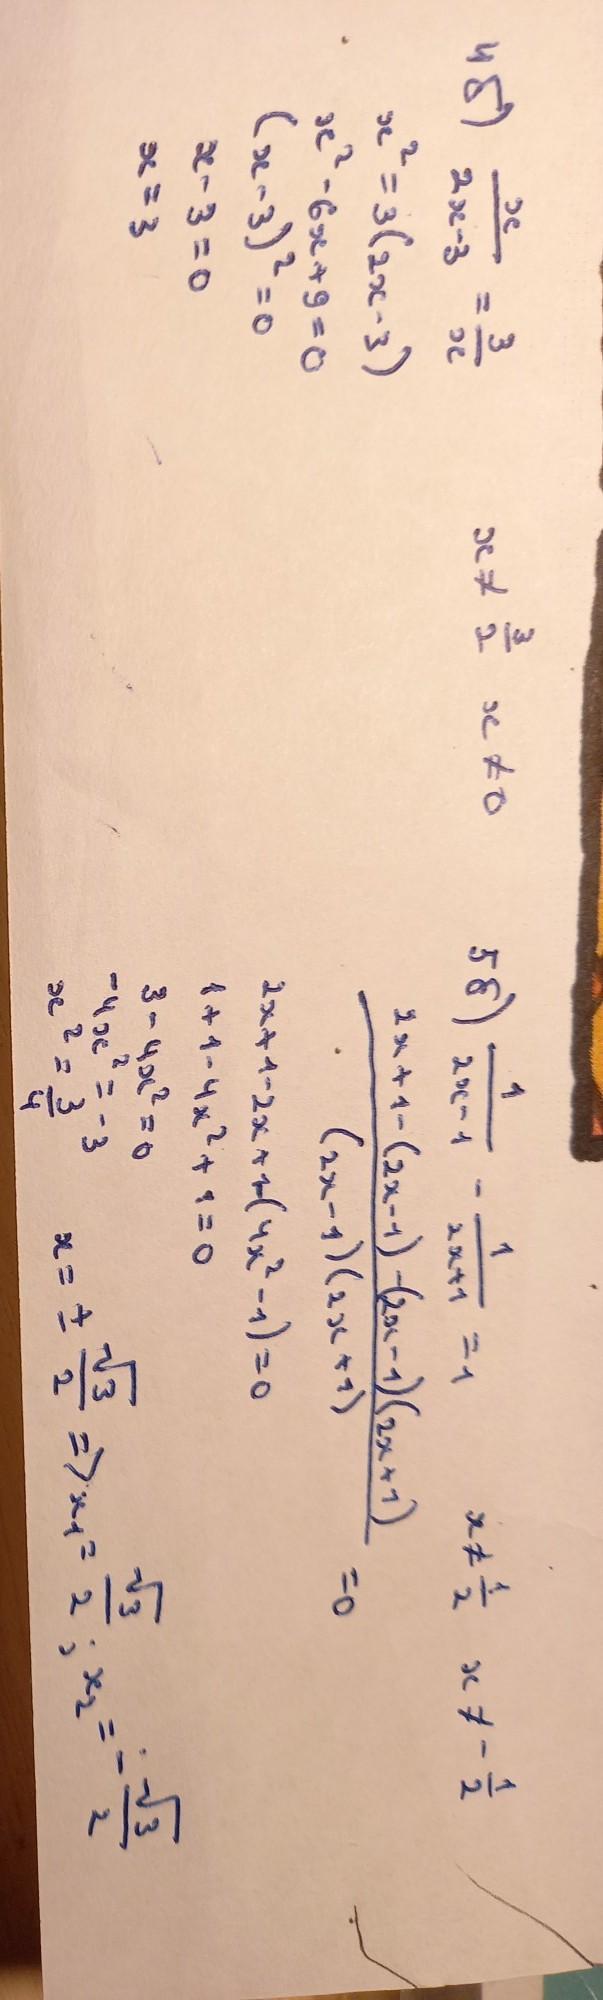 4б) x/(2x-3) = 3/x   x ≠ 3/2   x ≠ 0
x² = 3(2x-3)
x² - 6x + 9 = 0
(x-3)² = 0
x - 3 = 0
x = 3
5б) 1/(2x-1) - 1/(2x+1) = 1   x ≠ 1/2   x ≠ -1/2
(2x+1-(2x-1)-(2x-1)(2x+1))/((2x-1)(2x+1)) = 0
2x+1-2x+1-(4x²-1) = 0
1+1-4x²+1 = 0
3-4x² = 0
-4x² = -3
x² = 3/4   x = ±√3/2 => x₁ = √3/2 ; x₂ = -√3/2